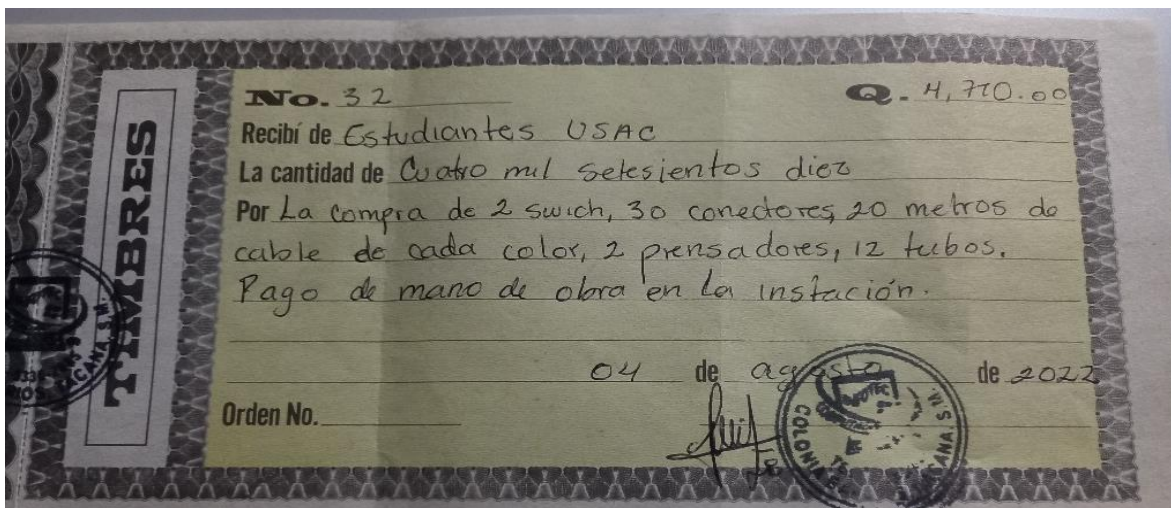 TIMBRES
No. 32 Q. 4,710.00
Recibí de Estudiantes USAC
La cantidad de Cuatro mil setesientos diez
Por La compra de 2 swich, 30 conectores, 20 metros de
cable de cada color, 2 prensadores, 12 tubos.
Pago de mano de obra en la instación.
04 de agosto de 2022
Orden No.
COLONIA
CANA, S.M.